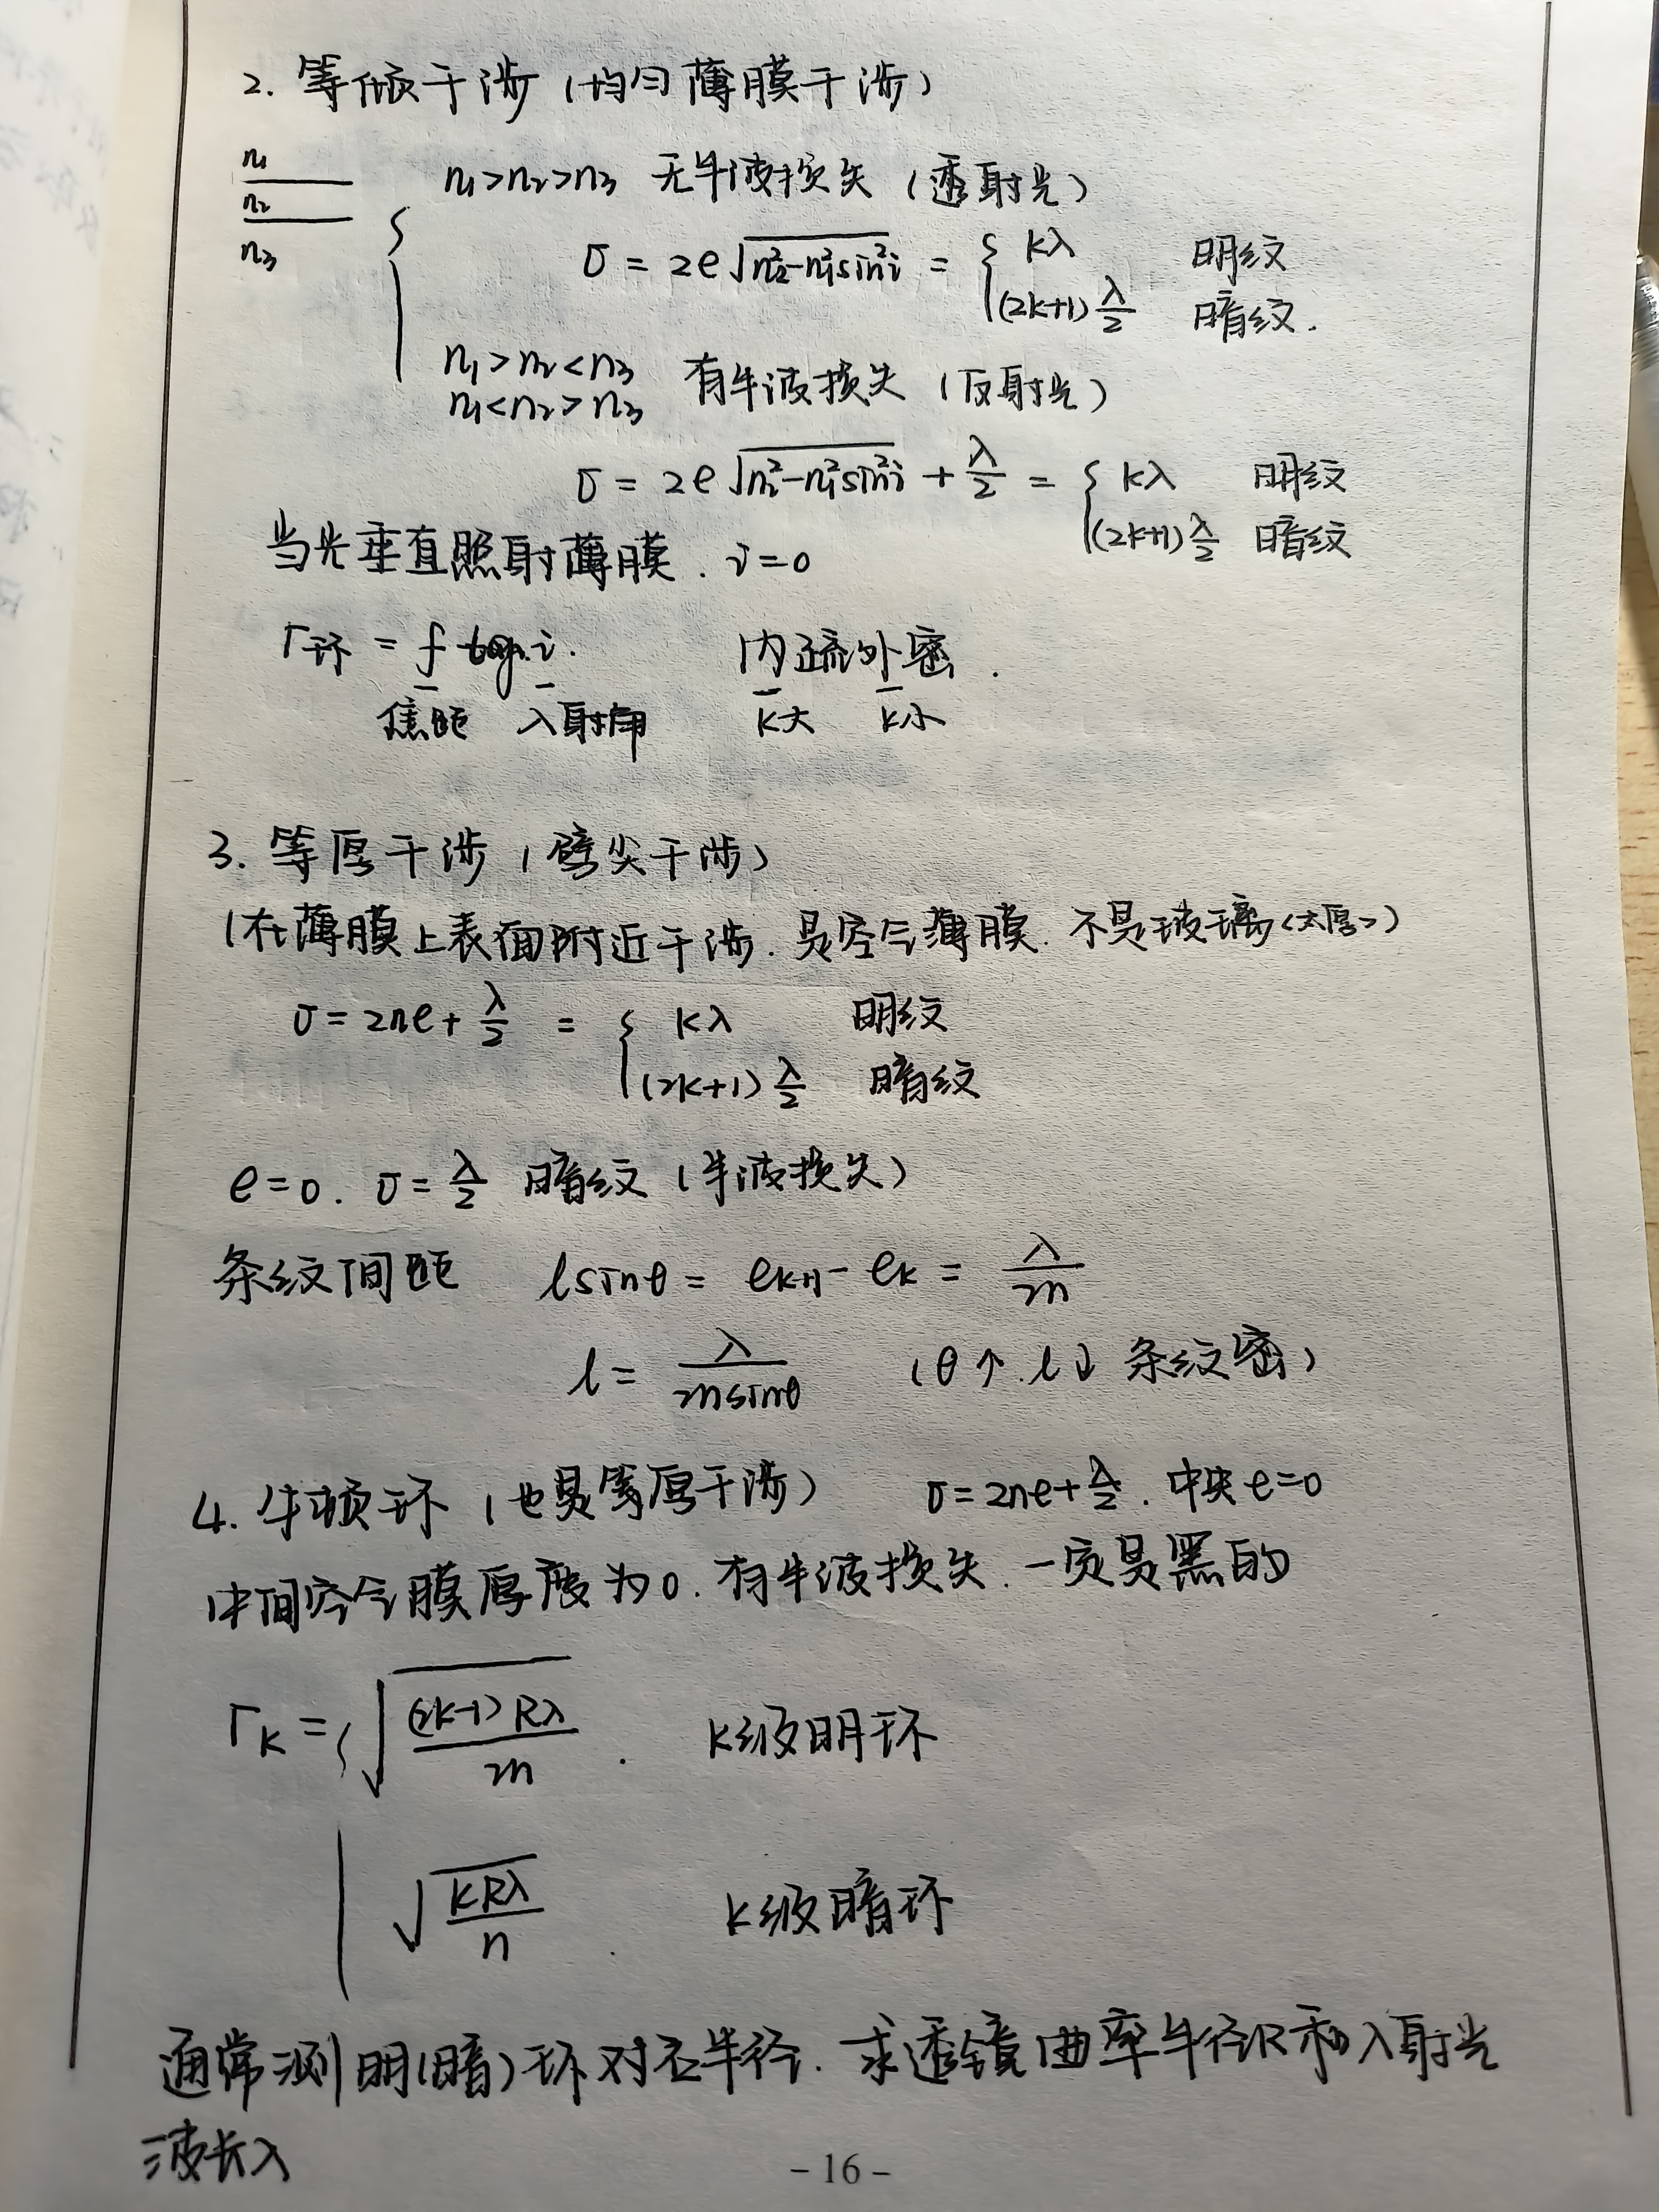 2. 等倾干涉（均匀薄膜干涉）
n₁
n₂
n₃
n₁>n₂>n₃ 无半波损失（透射光）
δ = 2e√(n₂²-n₁²sin²i) = { kλ 明纹
(2k+1)λ/2 暗纹.
n₁>n₂<n₃
n₁<n₂>n₃ 有半波损失（反射光）
δ = 2e√(n₂²-n₁²sin²i) + λ/2 = { kλ 明纹
(2k+1)λ/2 暗纹
当光垂直照射薄膜. i=0
r环 = f tan i. 内疏外密.
焦距 入射角 k大 k小
3. 等厚干涉（劈尖干涉）
（在薄膜上表面附近干涉. 是空气薄膜. 不是玻璃<太厚>）
δ = 2ne + λ/2 = { kλ 明纹
(2k+1)λ/2 暗纹
e=0. δ=λ/2 暗纹（半波损失）
条纹间距 lsinθ = eₖ₊₁ - eₖ = λ/2n
l = λ/2nsinθ （θ↑. l↓ 条纹密）
4. 牛顿环（也是等厚干涉） δ=2ne+λ/2. 中央e=0
中间空气膜厚度为0. 有半波损失. 一定是黑的
rₖ = { √((2k-1)Rλ/2n). k级明环
√(kRλ/n). k级暗环
通常测明(暗)环对应半径. 求透镜曲率半径R和入射光
波长λ
-16-